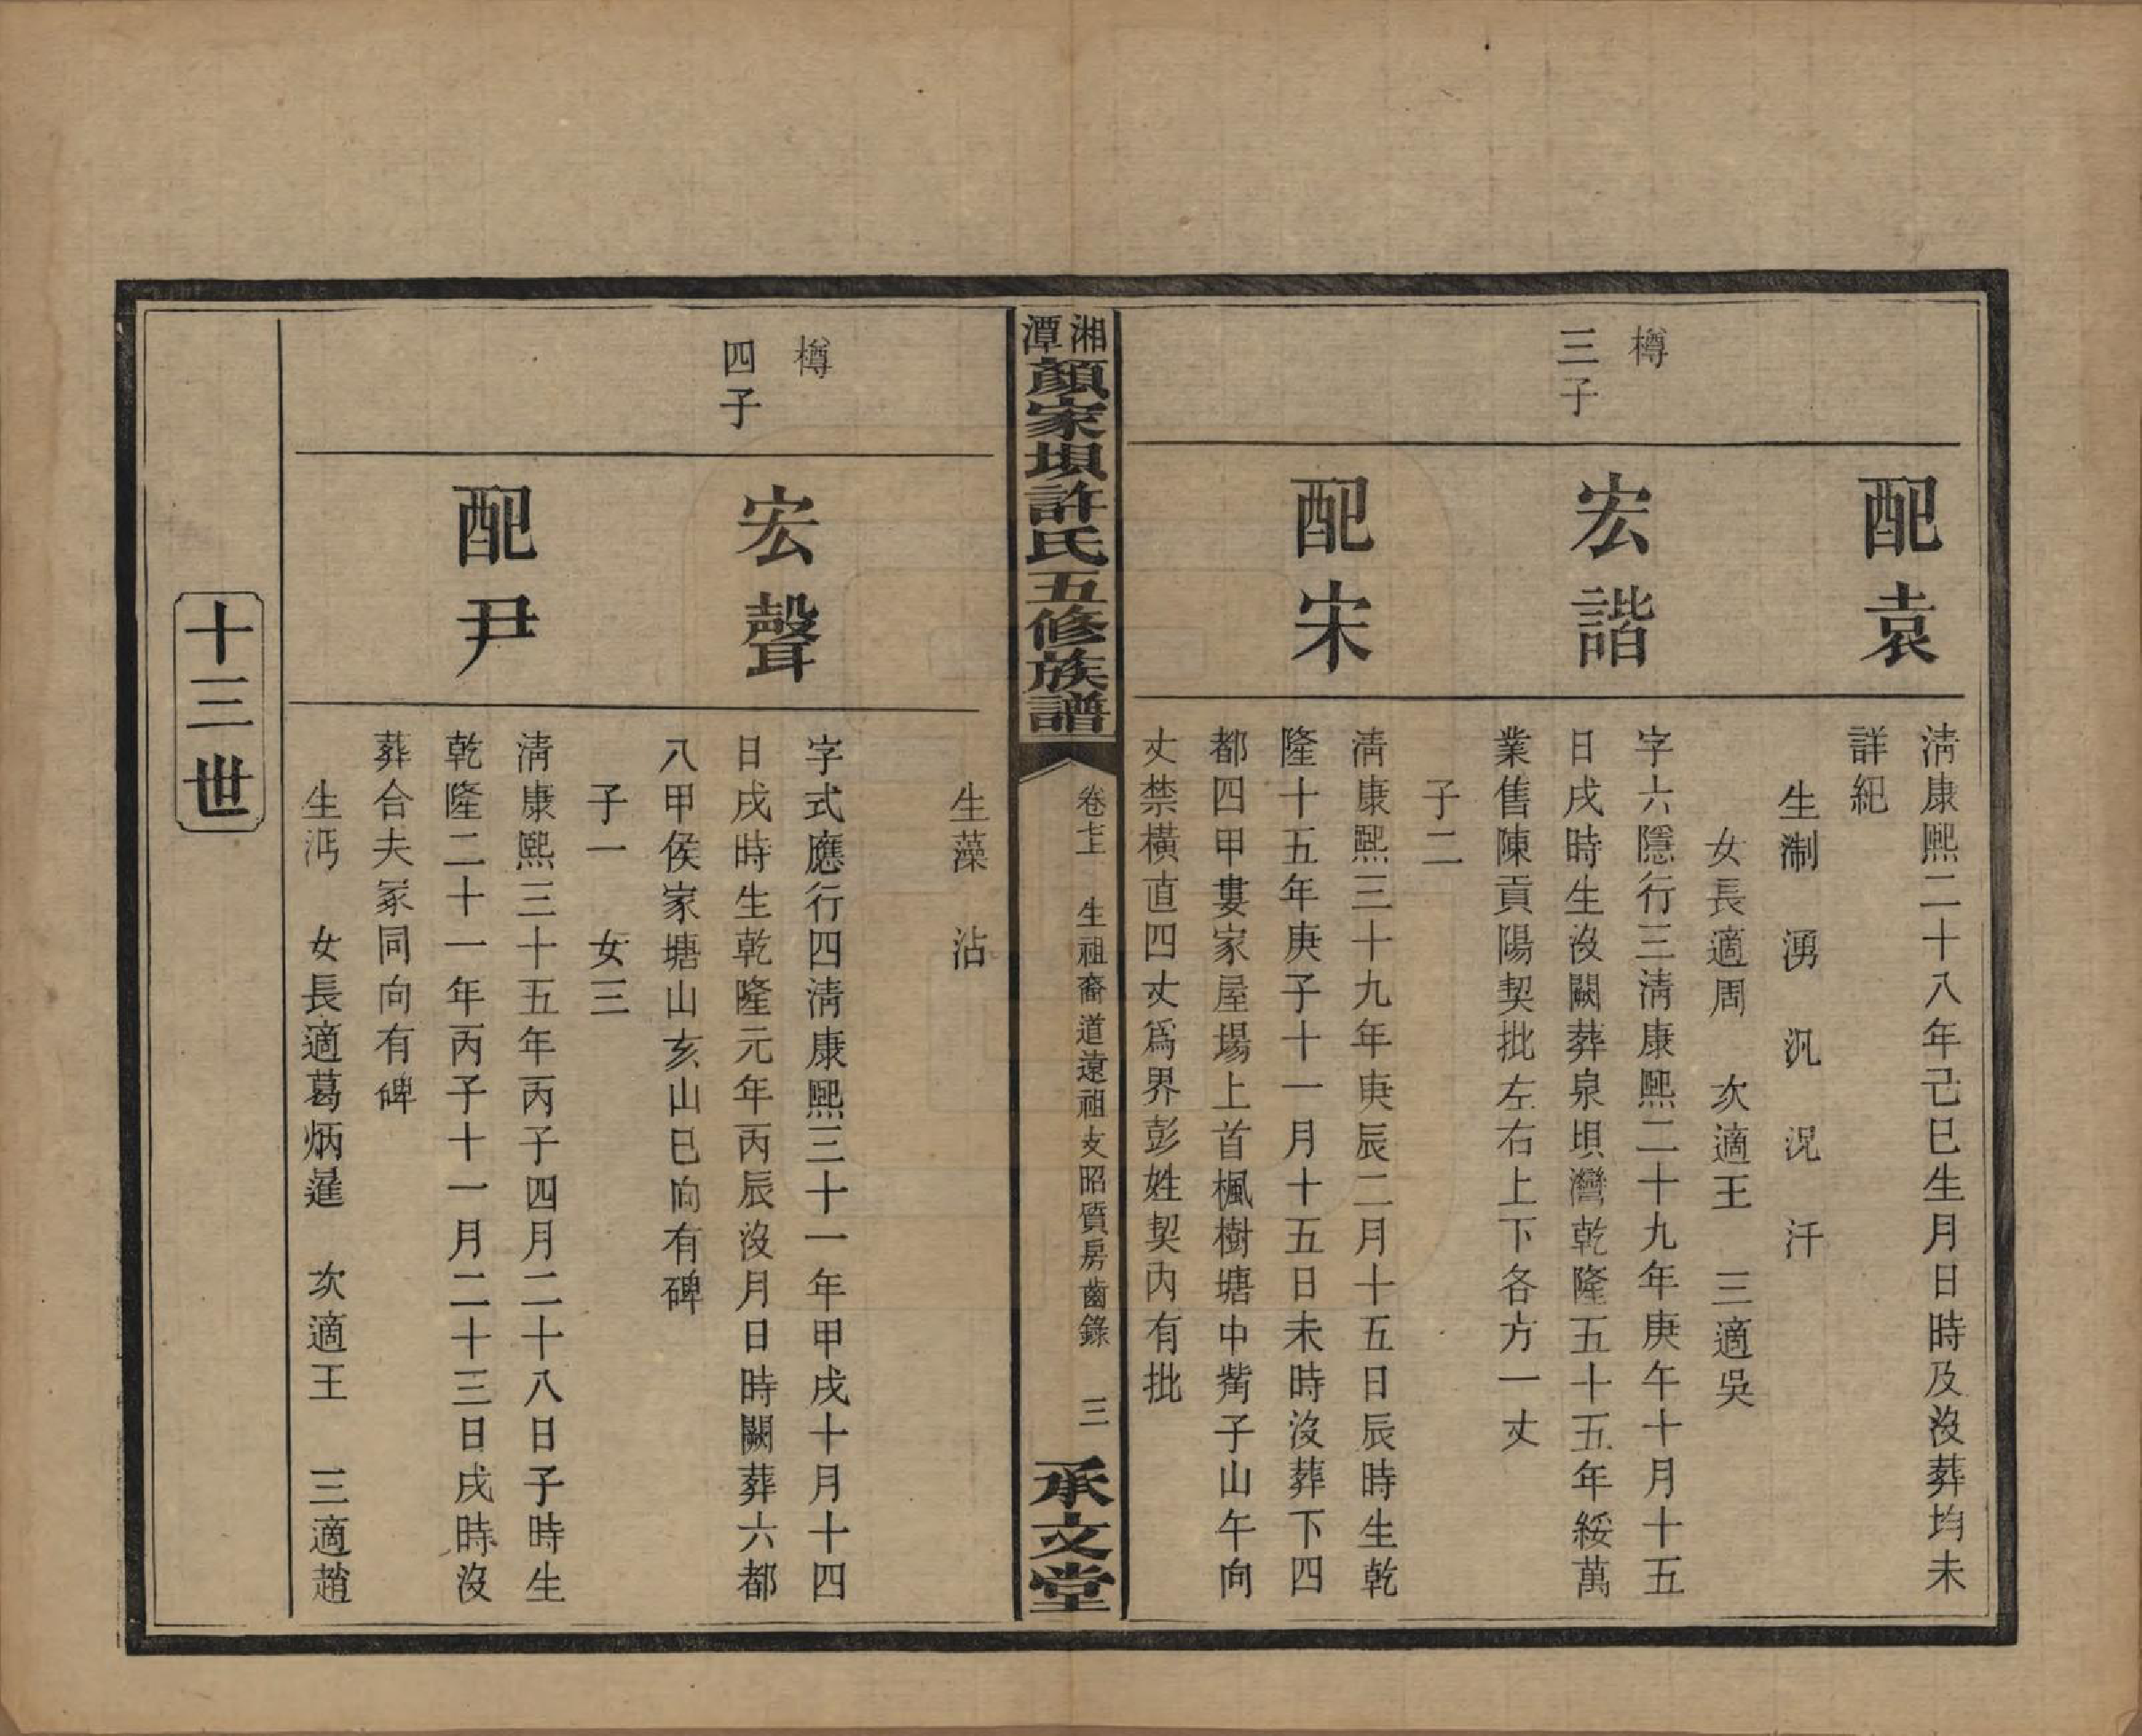 配袁
清康熙二十八年己巳生月日時及沒葬均未
詳紀
生淛　湧　汎　況　汗
女長適周　次適王　三適吳
樽
三子
宏諧
字六隱行三清康熙二十九年庚午十月十五
日戌時生沒闕葬泉垻灣乾隆五十五年綏萬
業售陳貢陽契批左右上下各方一丈
子二
配宋
清康熙三十九年庚辰二月十五日辰時生乾
隆十五年庚子十一月十五日未時沒葬下四
都四甲婁家屋場上首楓樹塘中觜子山午向
丈禁橫直四丈爲界彭姓契內有批
湘潭顏家垻許氏五修族譜
卷　生祖裔道遠祖支昭質房齒錄　三
承文堂
生藻　沾
樽
四子
宏聲
字式應行四清康熙三十一年甲戌十月十四
日戌時生乾隆元年丙辰沒月日時闕葬六都
八甲侯家塘山亥山巳向有碑
子一　女三
配尹
清康熙三十五年丙子四月二十八日子時生
乾隆二十一年丙子十一月二十三日戌時沒
葬合夫冢同向有碑
生沔　女長適葛炳暹　次適王　三適趙
十三世